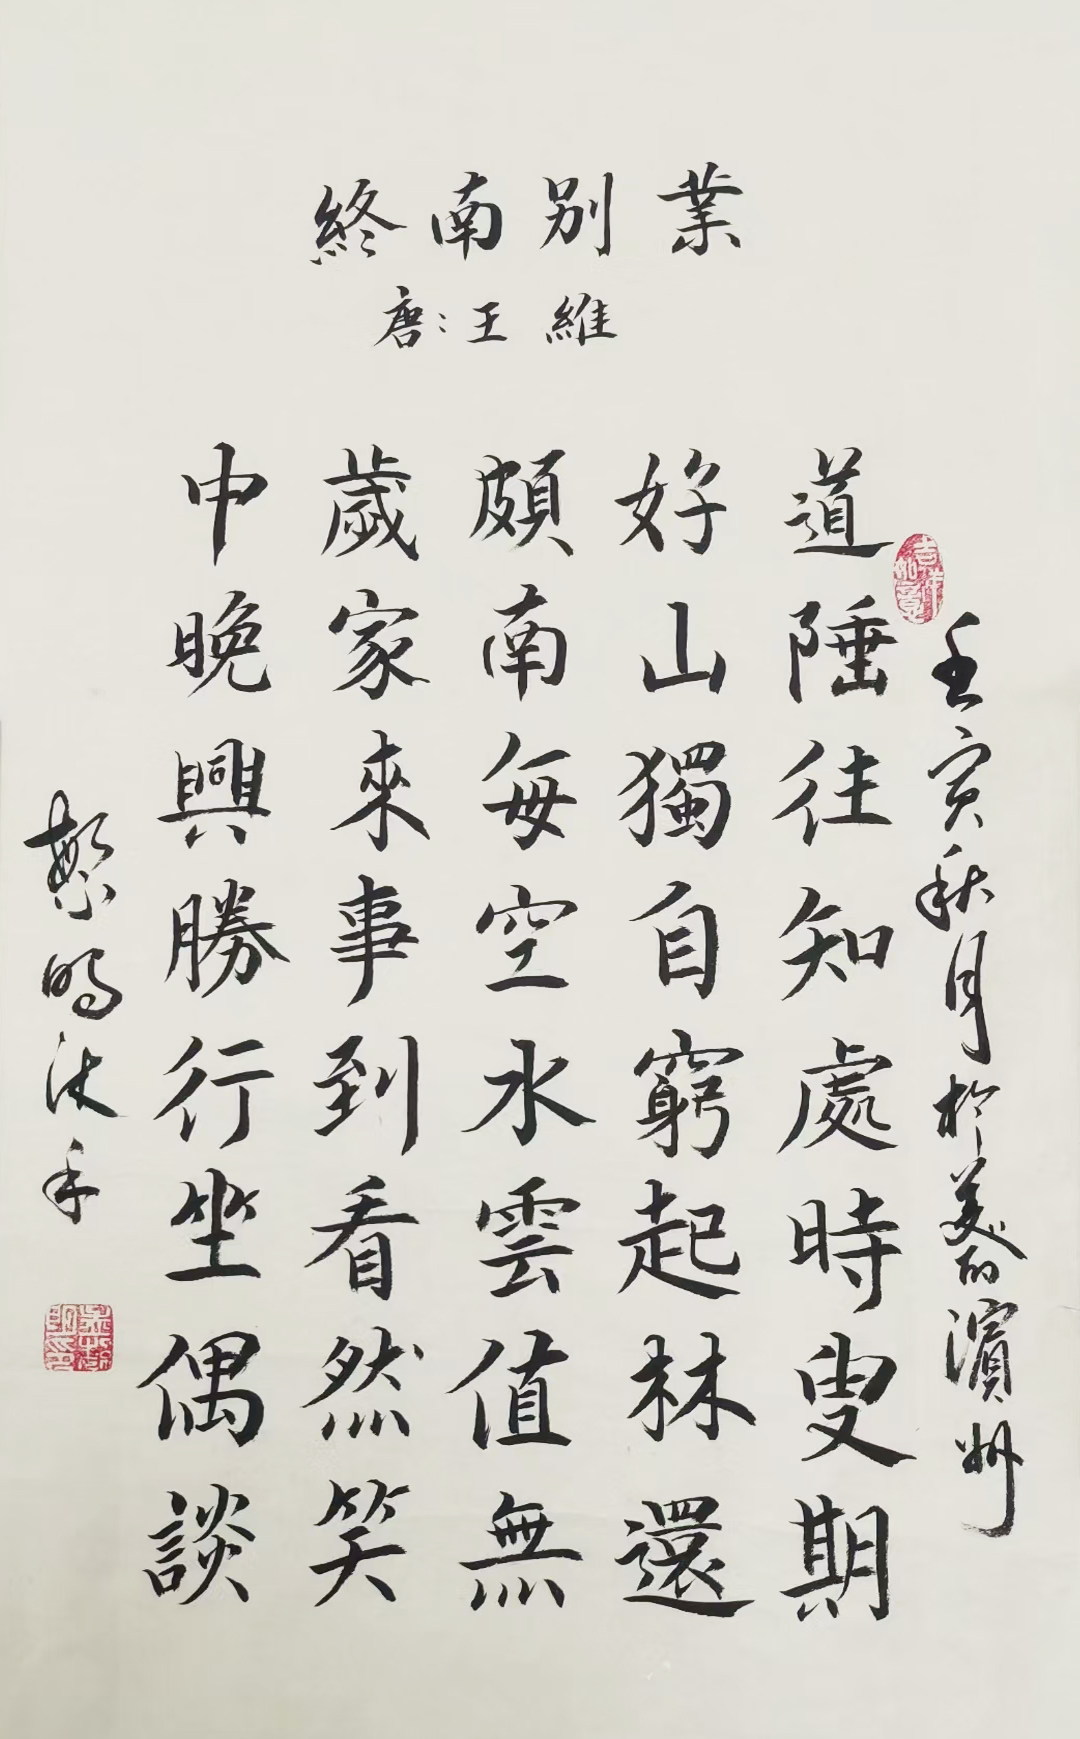 終南別業
唐:王維
中歲頗好道
晚家南山陲
興來每獨往
勝事空自知
行到水窮處
坐看雲起時
偶然值林叟
談笑無還期
吉祥如意
壬寅秋月於美的濱州
沐手